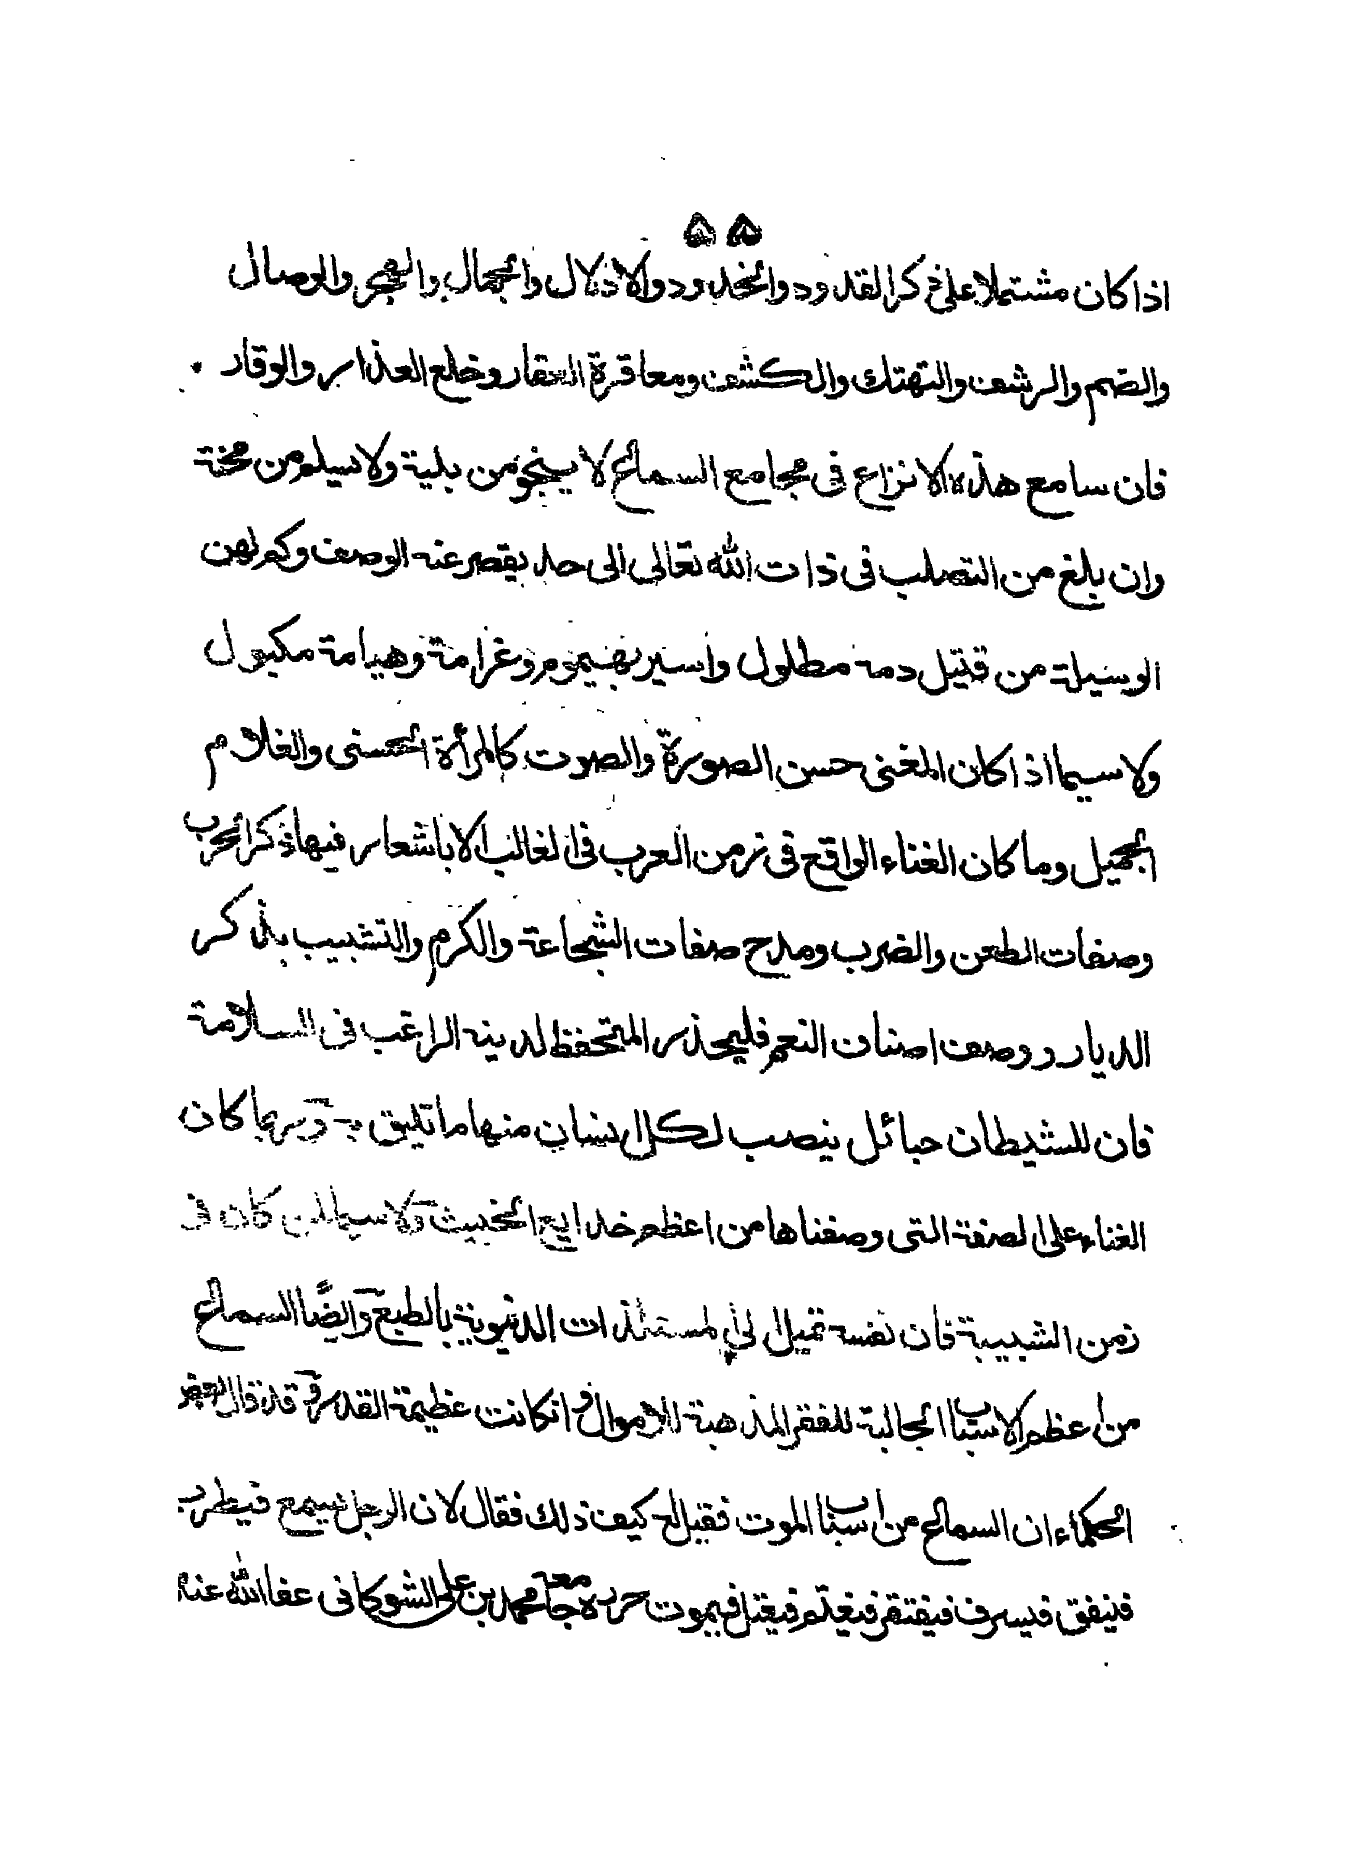 ۵۵
اذا كان مشتملا على ذكر القدود والخدود والاذلال والجمال والهجر والوصال
والضم والرشف والتهتك والكشف ومعاقرة العقار وخلع العذار والوقار
فان سامع هذه الانزاع فى مجامع السماع لا ينجو من بلية ولا يسلم من محنة
وان بلغ من التصلب فى ذات الله تعالى الى حد يقصر عنه الوصف وكم لهن
الوسيلة من قتيل دمه مطلول واسير بهموم وغرامة وهيامة مكبول
ولا سيما اذا كان المغنى حسن الصورة والصوت كالمرأة الحسنى والغلام
الجميل وما كان الغناء الواقع فى زمن العرب فى الغالب الا باشعار فيها ذكر الحرب
وصفات الطعن والضرب ومدح صفات الشجاعة والكرم والتشبيب بذكر
الديار ووصف اصناف النعم فليحذر المتحفظ لدينه الراغب فى السلامة
فان للشيطان حبائل ينصب لكل انسان منها ما تليق به وربما كان
الغناء على الصفة التى وصفناها من اعظم خدايع الخبيث ولا سيما لمن كان فى
زمن الشبيبة فان نفسه تميل الى المستلذات الدنيوية بالطبع وايضًا السماع
من أعظم الاسباب الجالبة للفقر المذهبة للاموال وانكانت عظيمة القدر وقد قال بعض
الحكماء ان السماع من أسباب الموت فقيل له كيف ذلك فقال لان الرجل يسمع فيطرب
فينفق فيسرف فيفتقر فيغتم فيعتل فيموت حرره جامعه محمد بن على الشوكانى عفا الله عنه